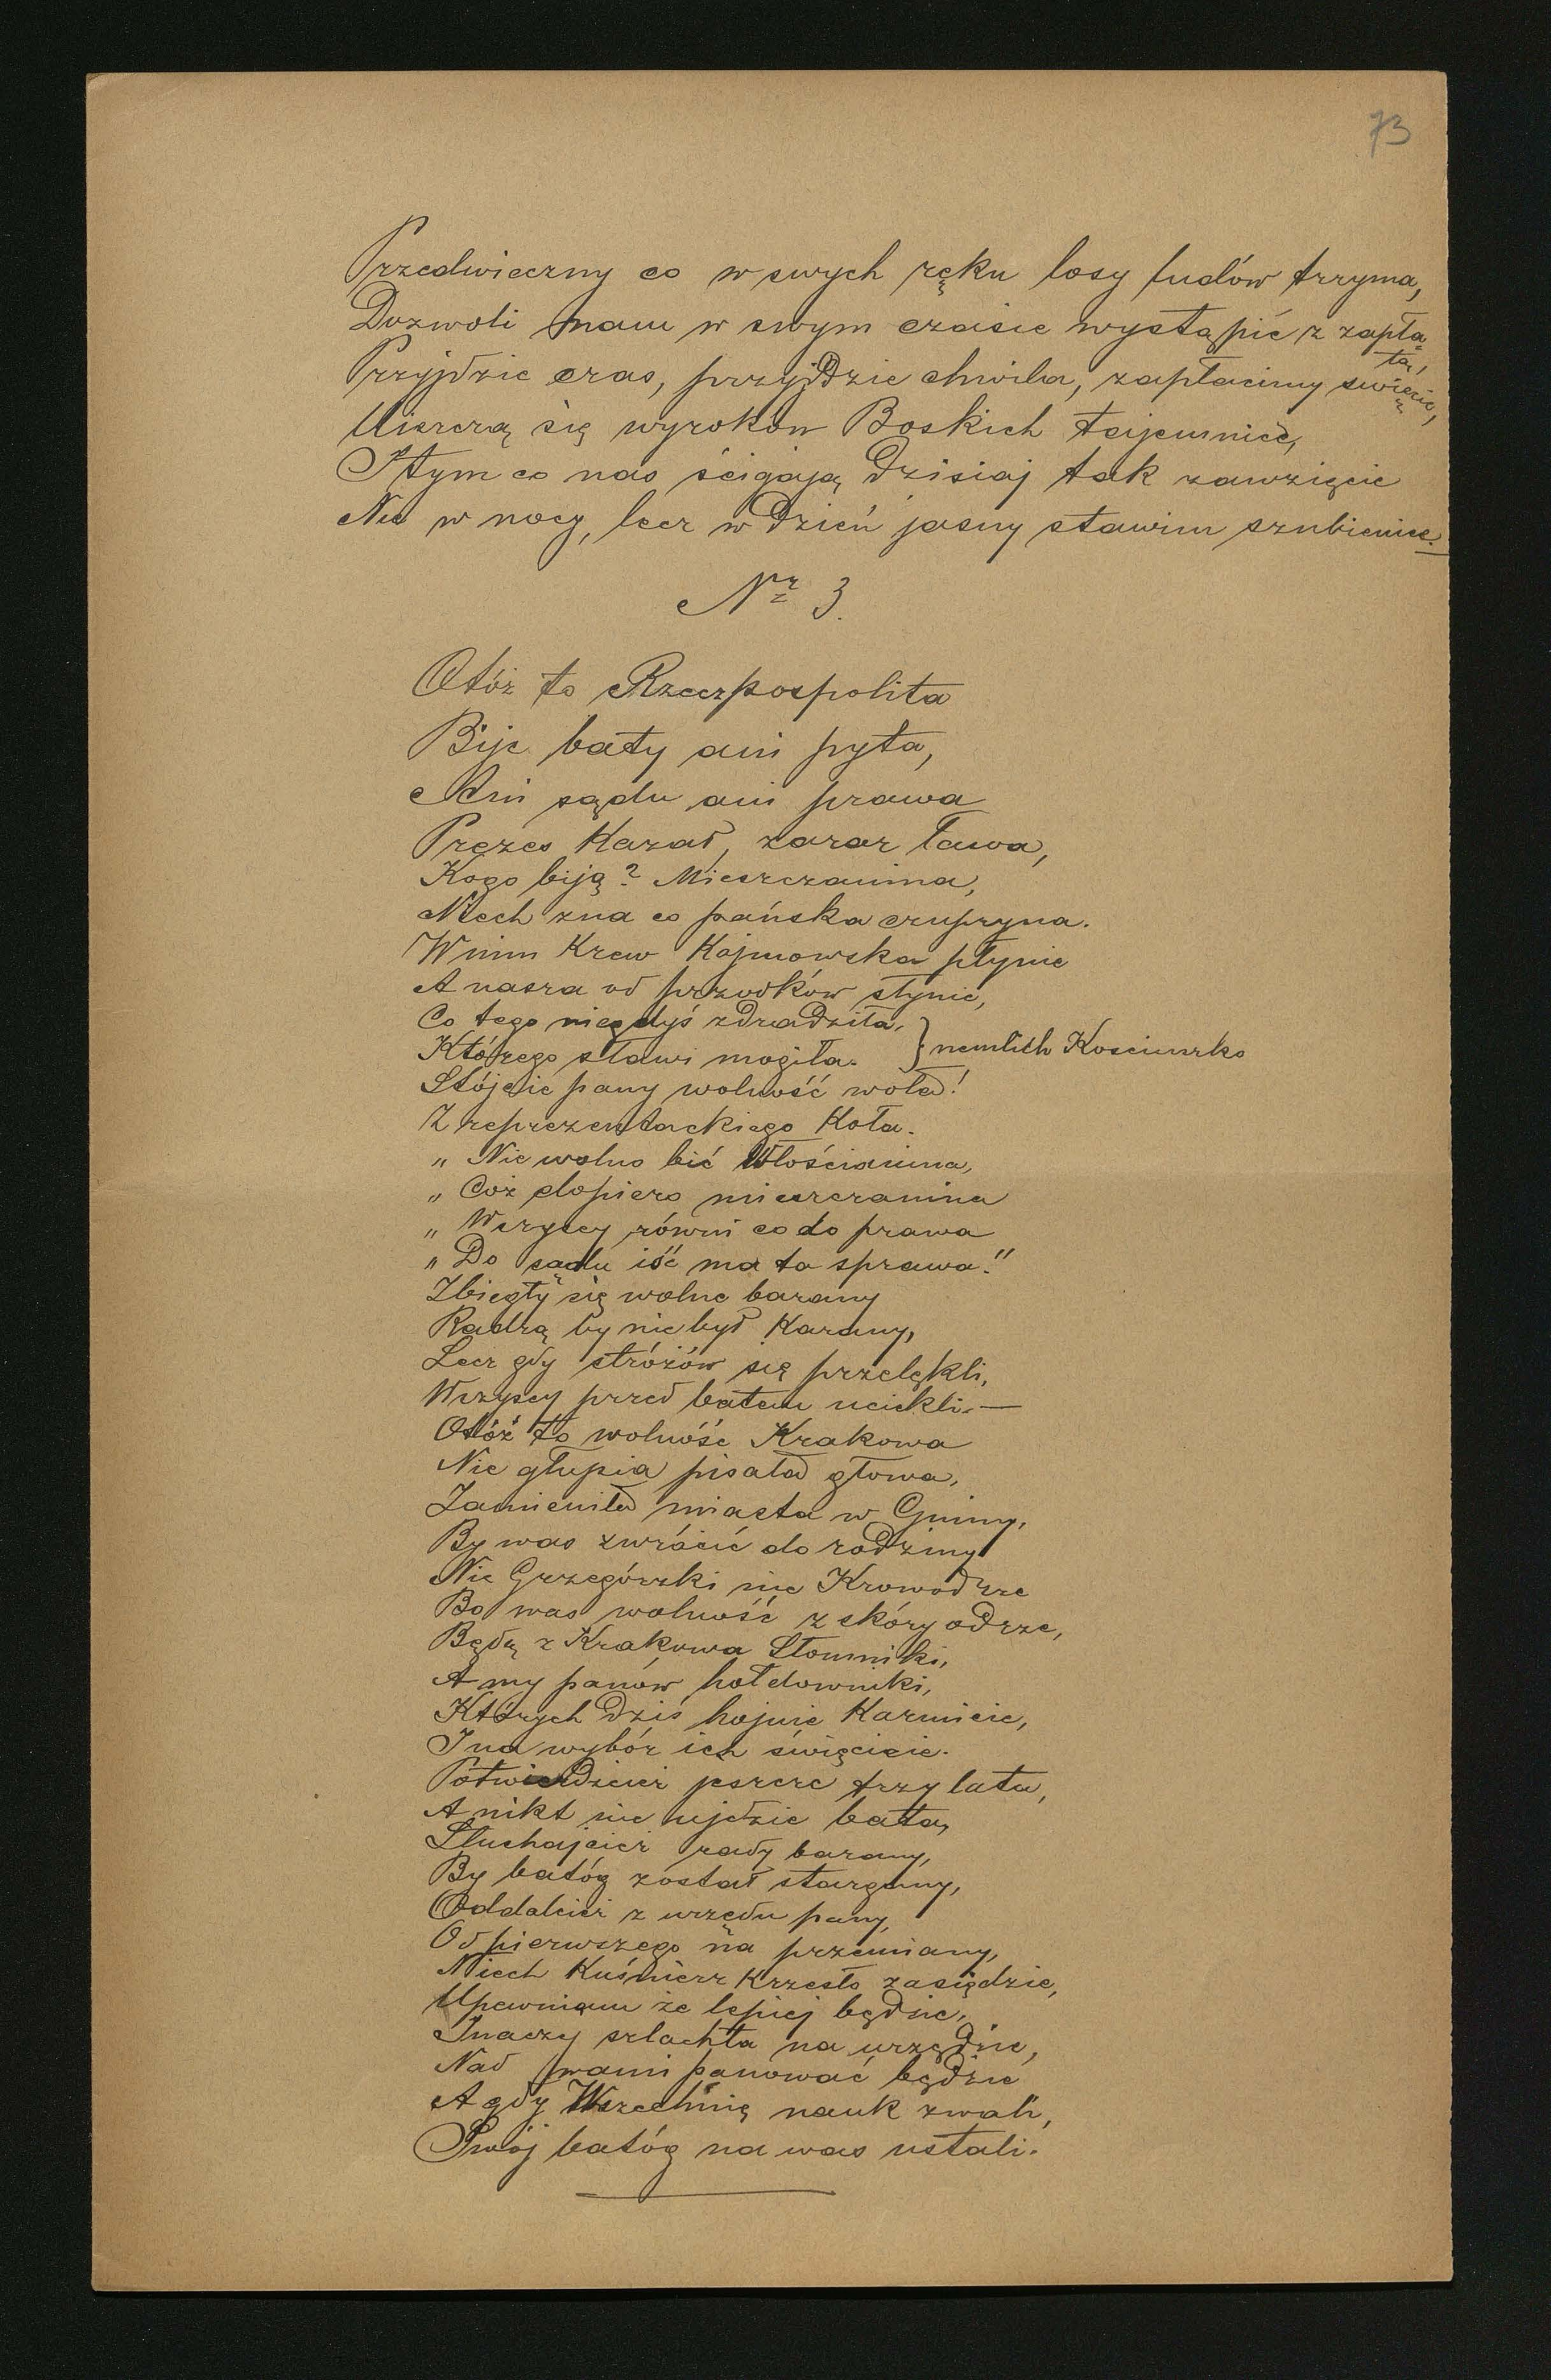 73
Przedwieczny co w swych ręku losy ludów trzyma,
Dozwoli nam w swym czasie wystąpić z zapła-
tą,
Przyjdzie czas, przyjdzie chwila, zapłacimy święcie,
Uiszczą się wyroków Boskich tajemnice,
I tym co nas ścigają dzisiaj tak zawzięcie
Nie w nocy, lecz w dzień jasny stawim szubienice.
Nr 3.
Otóż to Rzeczpospolita
Bije baty ani pyta,
Ani sądu ani prawa
Prezes kazał, zaraz ława,
Kogo biją? Mieszczanina,
Niech zna co pańska czupryna.
W nim krew Kajmowska płynie
A nasza od przodków słynie,
Co tego niegdyś zdradziła,
Którego sławi mogiła. } nemlich Kosciuszko
Stójcie pany wolność woła!
Z reprezentackiego koła.
„ Nie wolno bić Włościanina,
„ Cóż dopiero mieszczanina
„ Wszyscy równi co do prawa
„ Do sądu iść ma ta sprawa."
Zbiegły się wolne barany
Radzą by nie był karany,
Lecz gdy stróżów się przelękli,
Wszyscy przed batem uciekli. —
Otóż to wolność Krakowa
Nie głupia pisała głowa,
Zamieniła miasta w Gminy,
By was zwrócić do rodziny
Nie Grzegórzki nie Krowodrze
Bo was wolność z skóry odrze,
Będą z Krakowa Słomniki,
A my panów hołdowniki,
Których dziś hojnie karmicie,
I na wybór ich święcicie.
Potwierdzcież jeszcze trzy lata,
A nikt nie ujdzie bata,
Słuchajcież rady barany,
By batóg został stargany,
Oddalcież z urzędu pany,
Od pierwszego na przemiany,
Niech Kuśnierz krzesło zasiędzie,
Upewniam że lepiej będzie,
Inaczy szlachta na urzędzie,
Nad wami panować będzie
A gdy Wszechnię nauk zwali,
Swój batóg na was ustali.